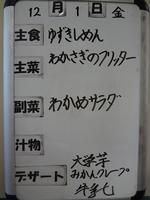 12月1日金
主食 ゆずきしめん
主菜 わかさぎのフリッター
副菜 わかめサラダ
汁物
デザート 大学芋
みかんクレープ
牛乳